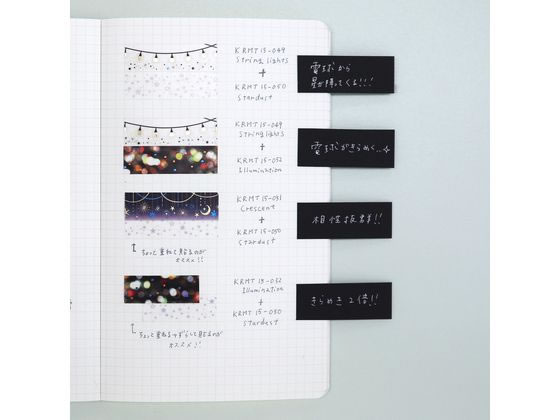 KRMT 15-049
String lights
+
KRMT 15-050
Stardust
電球から
星が降ってくる!!!
KRMT 15-049
String lights
+
KRMT 15-052
Illumination
電球がきらめく...✧
KRMT 15-051
Crescent
+
KRMT 15-050
Stardust
相性抜群!!
↑ ちょっと重ねて貼るのが
オススメ!!
KRMT 15-052
Illumination
+
KRMT 15-050
Stardust
きらめき2倍!!
↑
ちょっと重ねる→ずらして貼るのが
オススメ!!